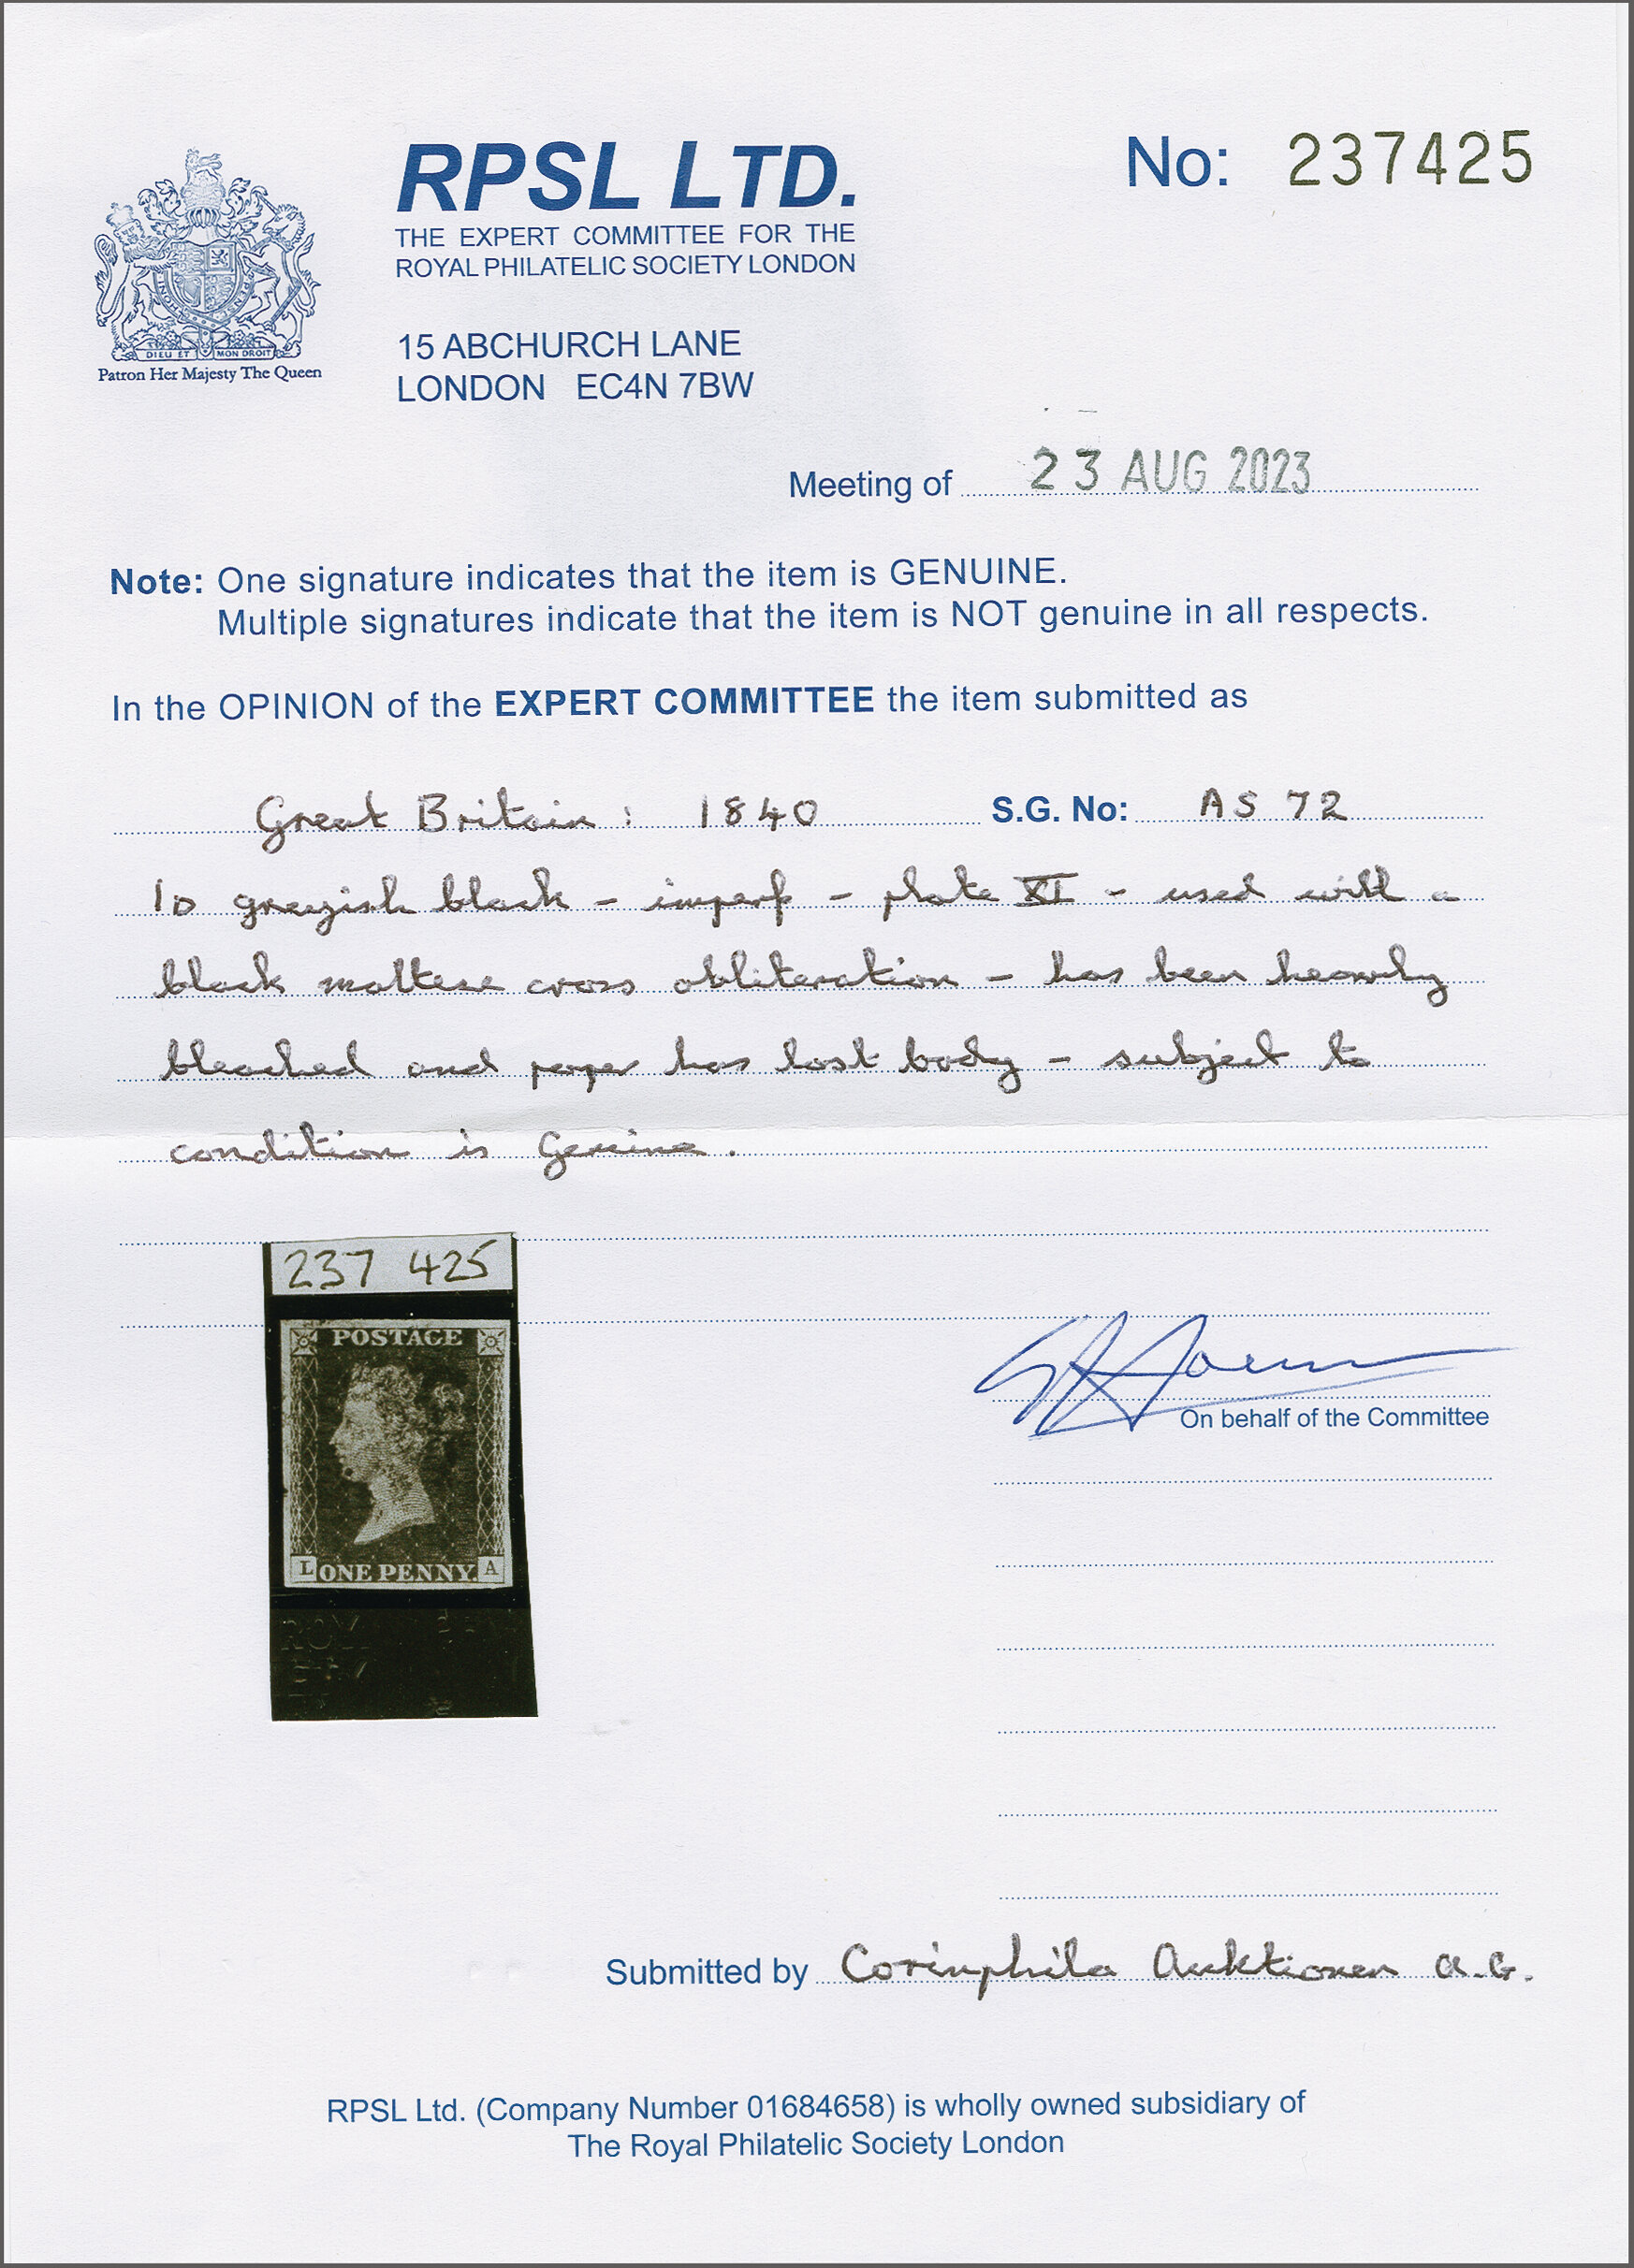 RPSL LTD.
THE EXPERT COMMITTEE FOR THE
ROYAL PHILATELIC SOCIETY LONDON
15 ABCHURCH LANE
LONDON EC4N 7BW
No: 237425
DIEU ET MON DROIT
Patron Her Majesty The Queen
Meeting of 23 AUG 2023
Note: One signature indicates that the item is GENUINE.
Multiple signatures indicate that the item is NOT genuine in all respects.
In the OPINION of the EXPERT COMMITTEE the item submitted as
Great Britain: 1840 S.G. No: AS 72
1D greyish black - imperf - plate XI - used with a
black maltese cross obliteration - has been heavily
bleached and paper has lost body - subject to
condition is Genuine.
237 425
POSTAGE
L ONE PENNY. A
On behalf of the Committee
Submitted by Corinphila Auktionen A.G.
RPSL Ltd. (Company Number 01684658) is wholly owned subsidiary of
The Royal Philatelic Society London